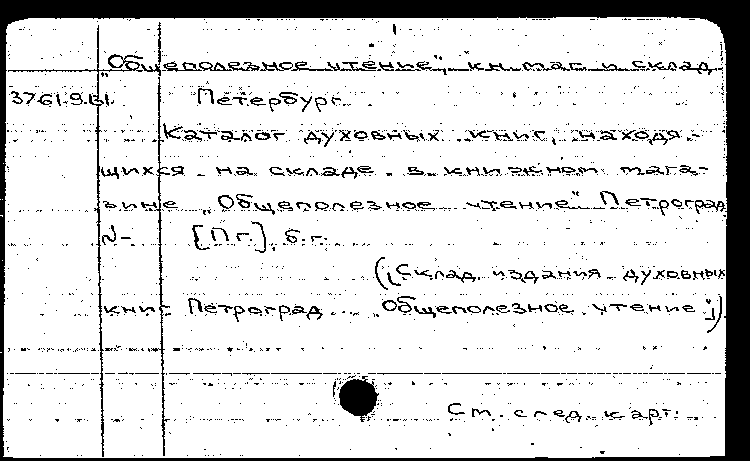 „Общеполезное чтение", кн. маг. и склад
3761.9.61. Петербург.
Каталог духовных книг, находя-
щихся на складе в книжном мага-
зине „Общеполезное чтение" Петроград
N- [Пг.], б.г.
(„Склад издания духовных
книг Петроград Общеполезное чтение")
См. след. карт.